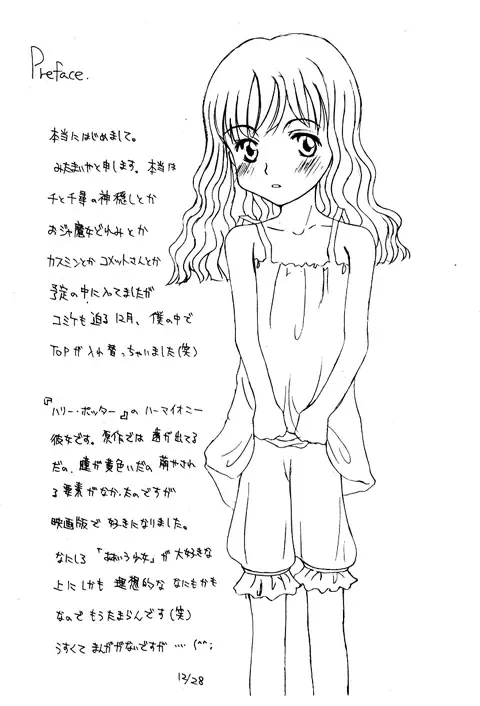 Preface.
本当にはじめまして。
みたまいやと申します。本当は
千と千尋の神隠しとか
おジャ魔女どれみとか
カスミンとか コメットさんとか
予定の中に入ってましたが
コミケも迫る12月、僕の中で
TOPが入れ替っちゃいました(笑)
『ハリー・ポッター』の ハーマイオニー
彼女です。原作では 歯が出てる
だの、瞳が黄色いだの 萌やされ
る要素がなかったのですが
映画版で 好きになりました。
なにしろ 「ああいう少女」が 大好きな
上に しかも 理想的な なにもかも
なので もうたまらんです(笑)
うすくて まんががないですが ・・・・ (^^;
12/28